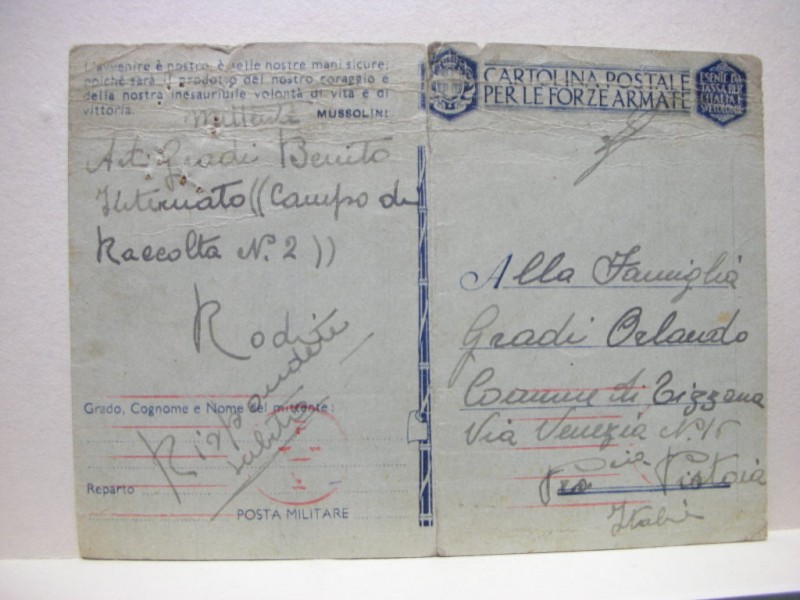 L'avvenire è nostro, è nelle nostre mani sicure,
poichè sarà il prodotto del nostro coraggio e
della nostra inesauribile volontà di vita e di
vittoria.
MUSSOLINI
Mittente
Art. Gradi Benito
Internato ((Campo di
Raccolta N. 2 ))
Rodi
Rispondete
subito
Grado, Cognome e Nome del mittente:
Reparto
POSTA MILITARE
CARTOLINA POSTALE
PER LE FORZE ARMATE
ESENTE DA
TASSA PER
L'ITALIA E
Alla Famiglia
Gradi Orlando
Comune di Tizzana
Via Venezia N. 15
Pistoia
Italia